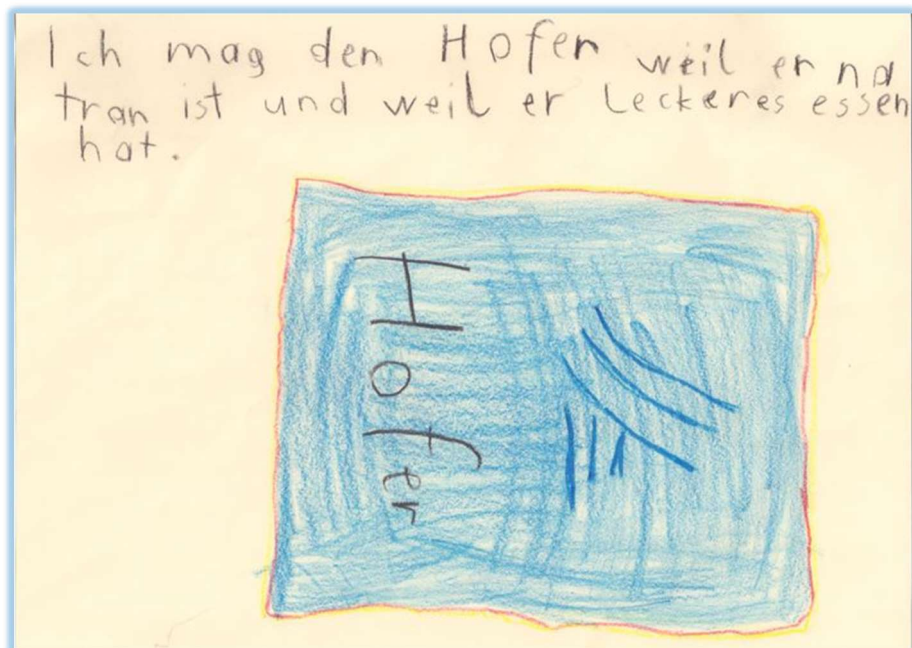 Ich mag den Hofer weil er na
tran ist und weil er Leckeres essen
hat.
Hofer